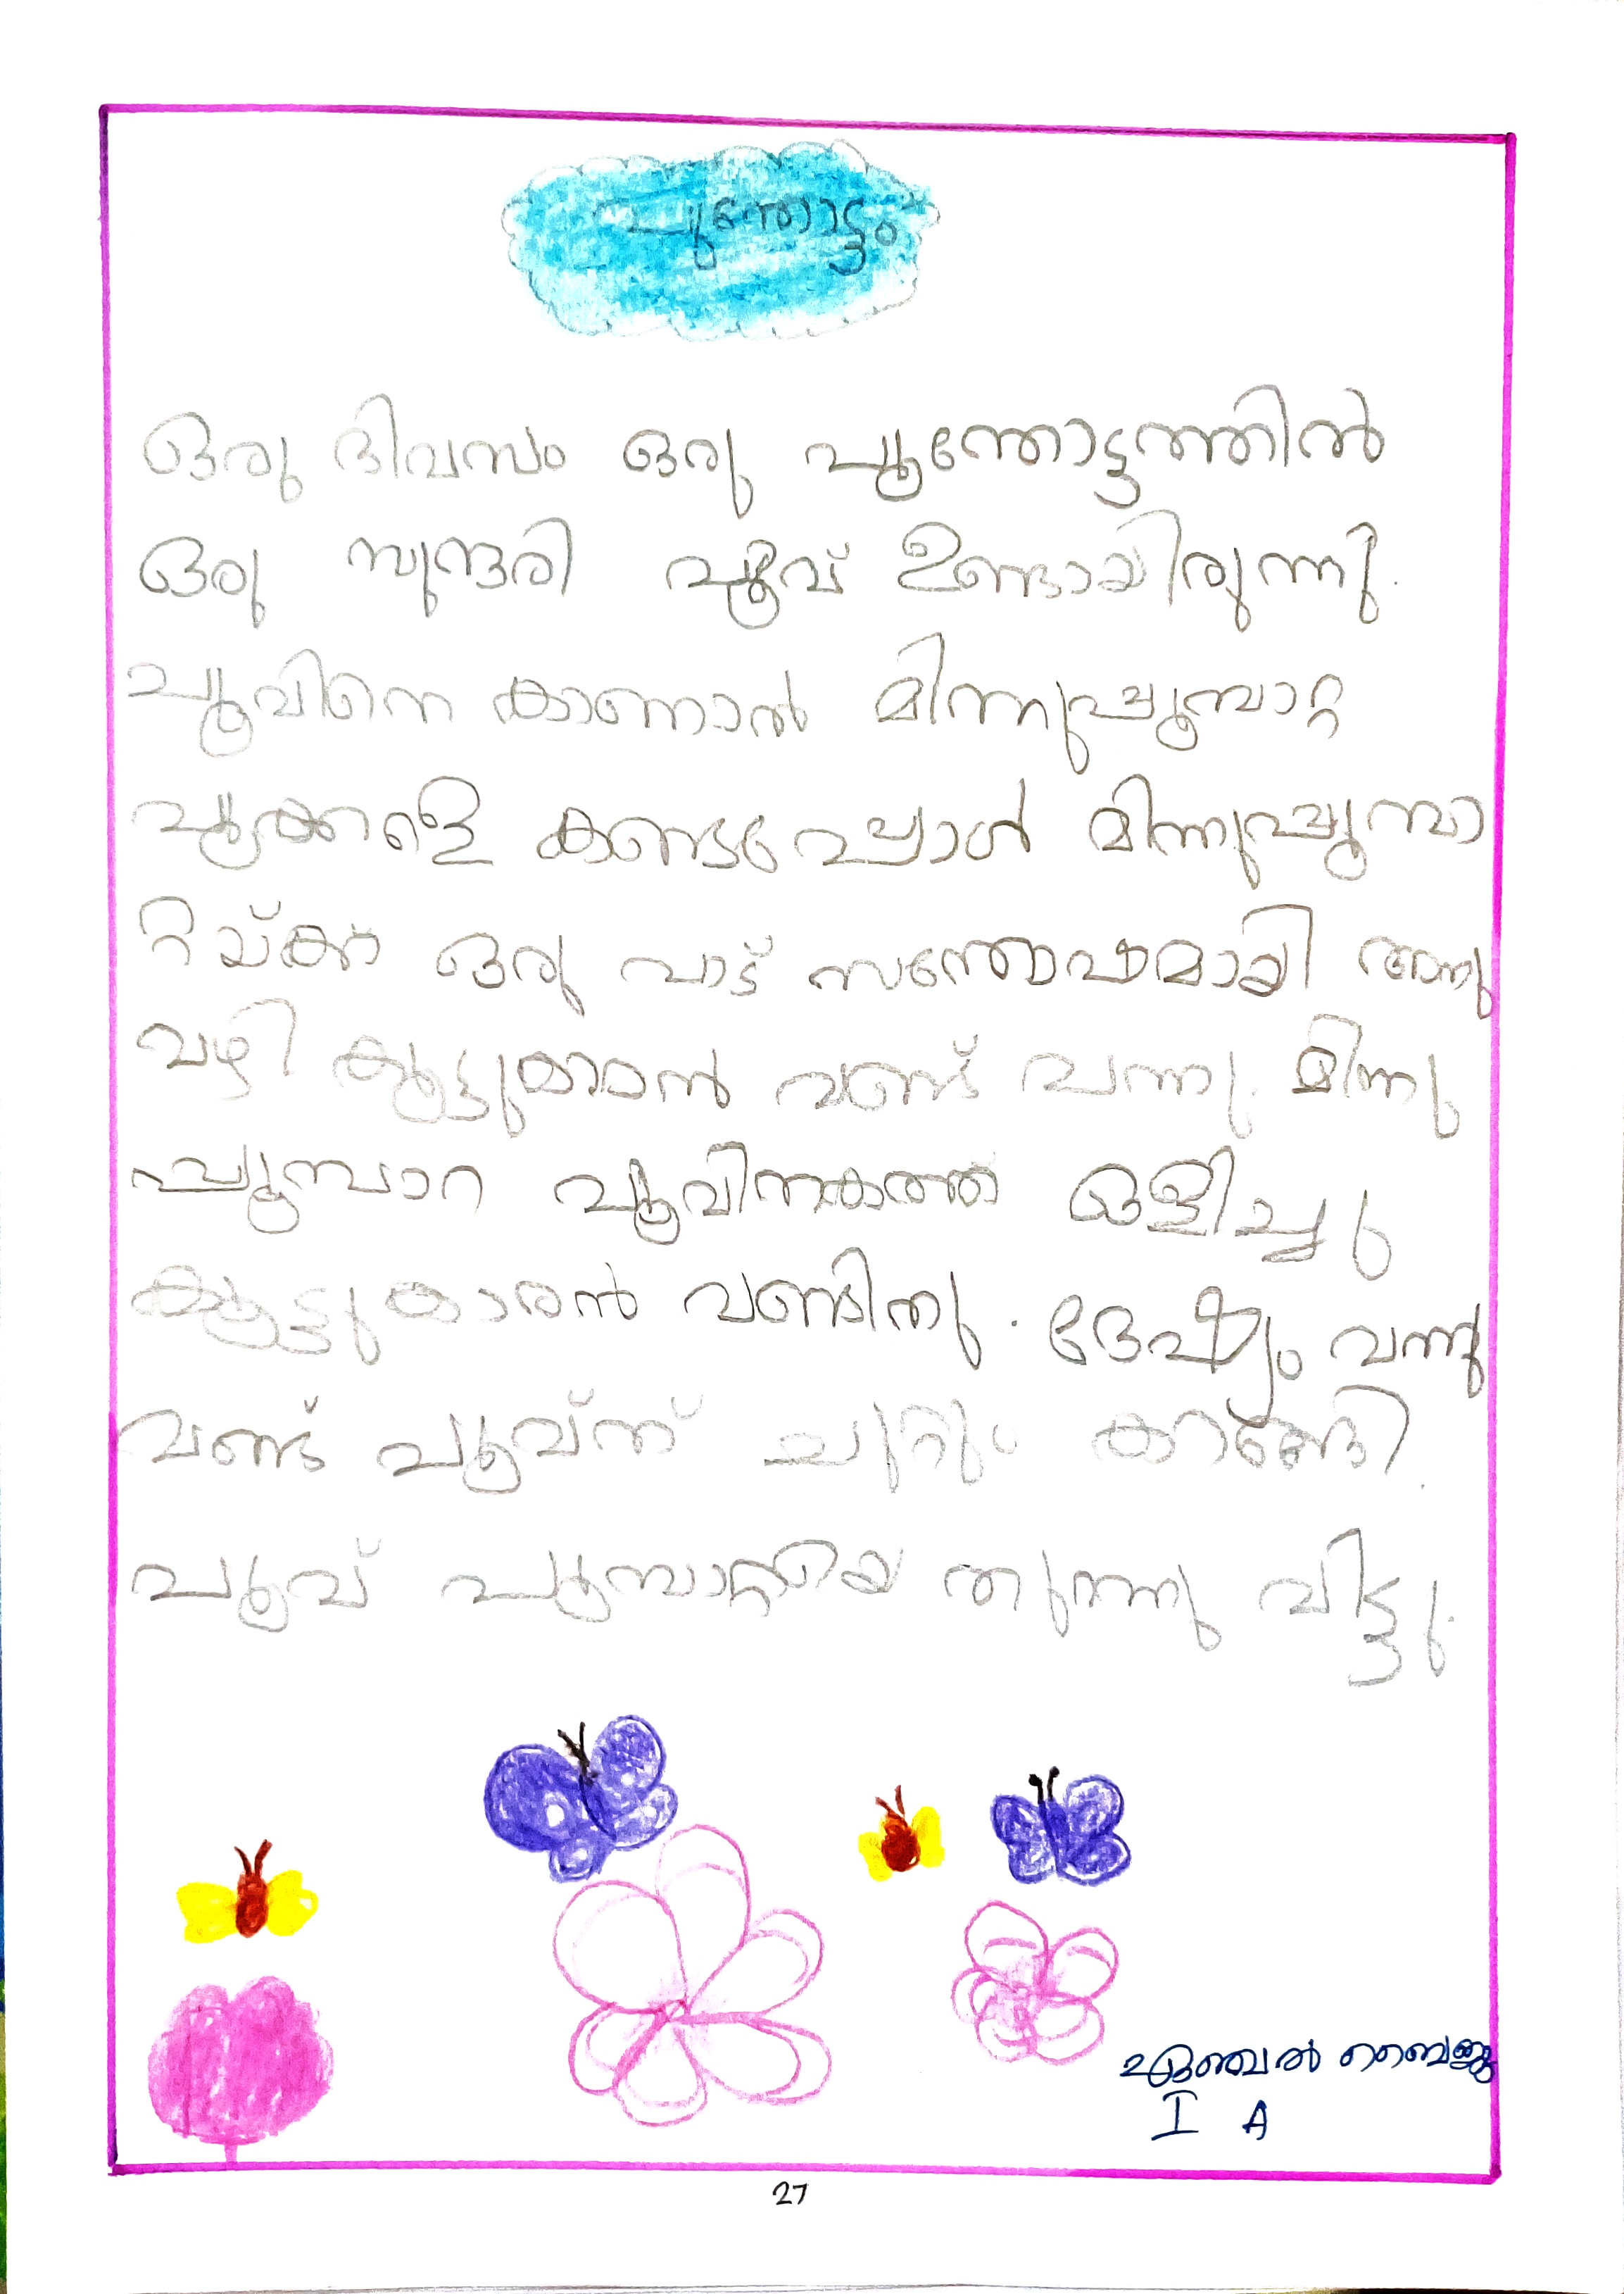 പൂന്തോട്ടം
ഒരു ദിവസം ഒരു പൂന്തോട്ടത്തിൽ
ഒരു സുന്ദരി പൂവ് ഉണ്ടായിരുന്നു.
പൂവിനെ കാണാൻ മിന്നുപ്പൂമ്പാറ്റ
പൂക്കളെ കണ്ടപ്പോൾ മിന്നുപ്പൂമ്പാ
റ്റയ്ക്ക ഒരു പാട് സന്തോഷമായി അന്നു
വഴി കൂട്ടുകാരൻ വണ്ട് വന്നു. മിന്നു
പ്പൂമ്പാറ പൂവിന്നകത്ത് ഒളിച്ചു
കൂട്ടുകാരൻ വണ്ടിനു. ദേഷ്യം വന്നു
വണ്ട് പൂവ്ന് ചുറ്റും കറങ്ങി.
പൂവ് പൂമ്പാറ്റയെ തുറന്നു വിട്ടു.
ഏഞ്ചൽ ബൈജു
I A
27